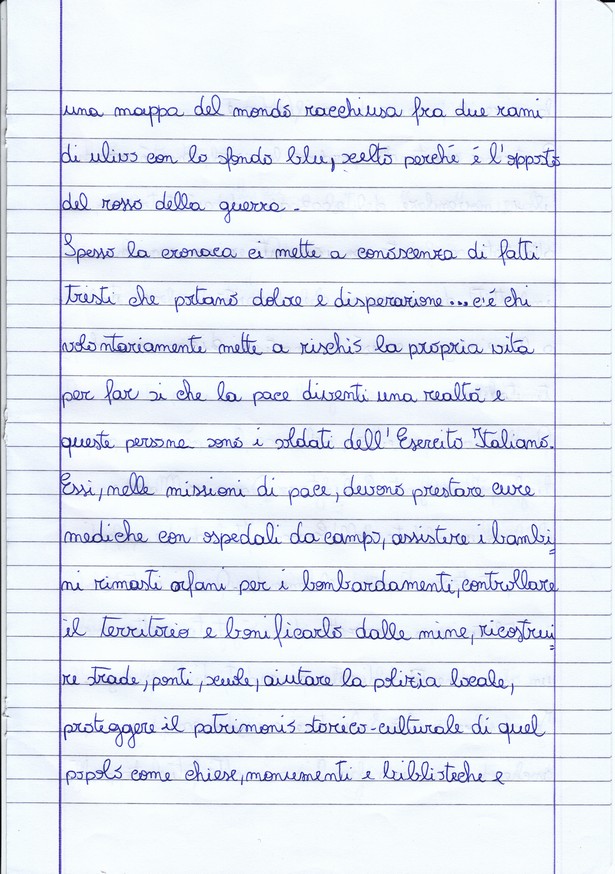 una mappa del mondo racchiusa fra due rami
di ulivo con lo sfondo blu, scelto perché é l'opposto
del rosso della guerra.
Spesso la cronaca ci mette a conoscenza di fatti
tristi che portano dolore e disperazione... c'é chi
volontariamente mette a rischio la propria vita
per far si che la pace diventi una realtà e
queste persone sono i soldati dell'Esercito Italiano.
Essi, nelle missioni di pace, devono prestare cure
mediche con ospedali da campo, assistere i bambi=
ni rimasti orfani per i bombardamenti, controllare
il territorio e bonificarlo dalle mine, ricostrui=
re strade, ponti, scuole, aiutare la polizia locale,
proteggere il patrimonio storico-culturale di quel
popolo come chiese, monumenti e biblioteche e